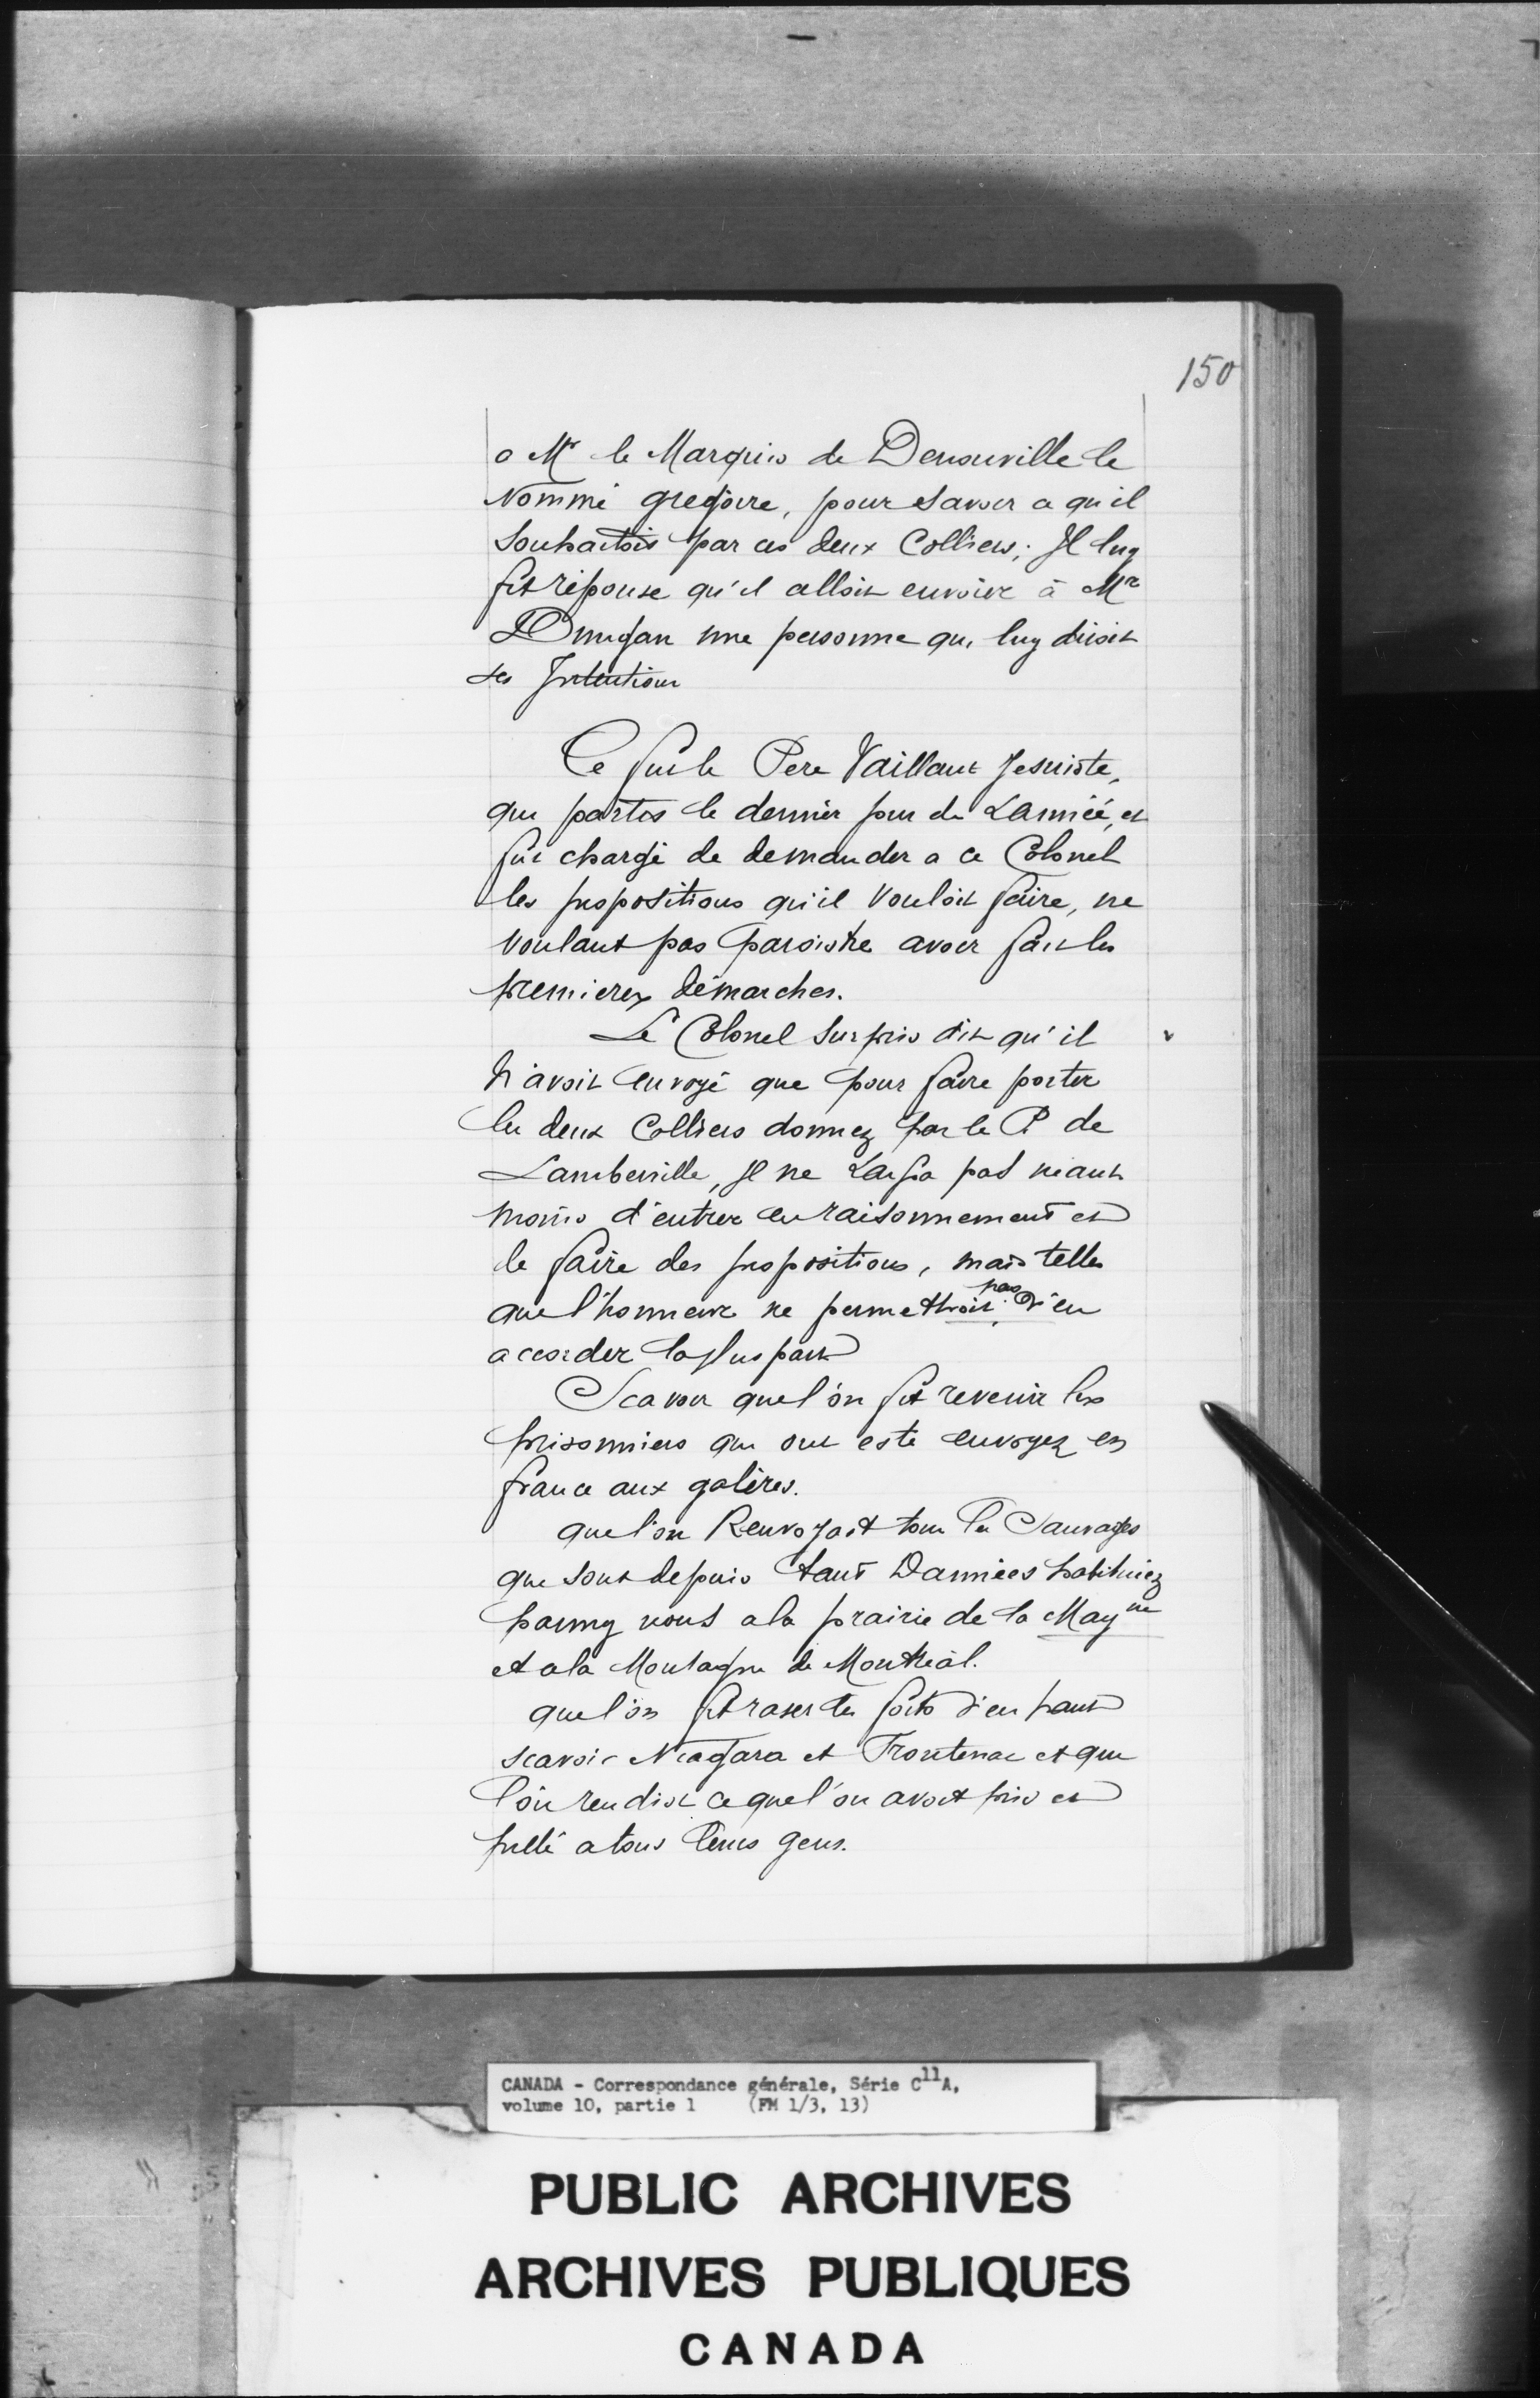 150
a Mr le Marquis de Denonville le
Nommé gregoire, pour savoir ce qu'il
Souhaitois par ces deux Colliers; Il luy
fit réponse qu'il alloit envoier à Mr
Dungan une personne qui luy diroit
ses Intentions
Ce fut le Pere Vaillant Jesuiste,
qui partis le dernier jour de Lannéé, et
fut chargé de demander a ce Colonel
les propositions qu'il Vouloit faire, ne
Voulant pas paroistre avoir fait les
premieres démarches.
Le Colonel Surpris dit qu'il
N'avoit Envoyé que pour faire porter
les deux Colliers donnez par le P. de
Lamberville, Il ne Laissa pas néant
moins d'entrer en raisonnement et
de faire des propositions, mais telles
que l'honneur ne permettroit pas d'en
accorder la plus part
Scavoir que l'on fit revenir les
prisonniers qui ont esté envoyez en
france aux galères.
que l'on Renvoyast tous les Sauvages
que sont depuis tant Dannées habituez
parmy nous a la prairie de la Mayne
et a la Montagne de Montréal.
que l'on fit raser les forts d'en haut
scavoir Niagara et Frontenac et que
l'on rendist ce que l'on avoit pris et
pillé a tous leurs gens.
CANADA - Correspondance générale, Série C11A,
volume 10, partie 1 (FM 1/3, 13)
PUBLIC ARCHIVES
ARCHIVES PUBLIQUES
CANADA